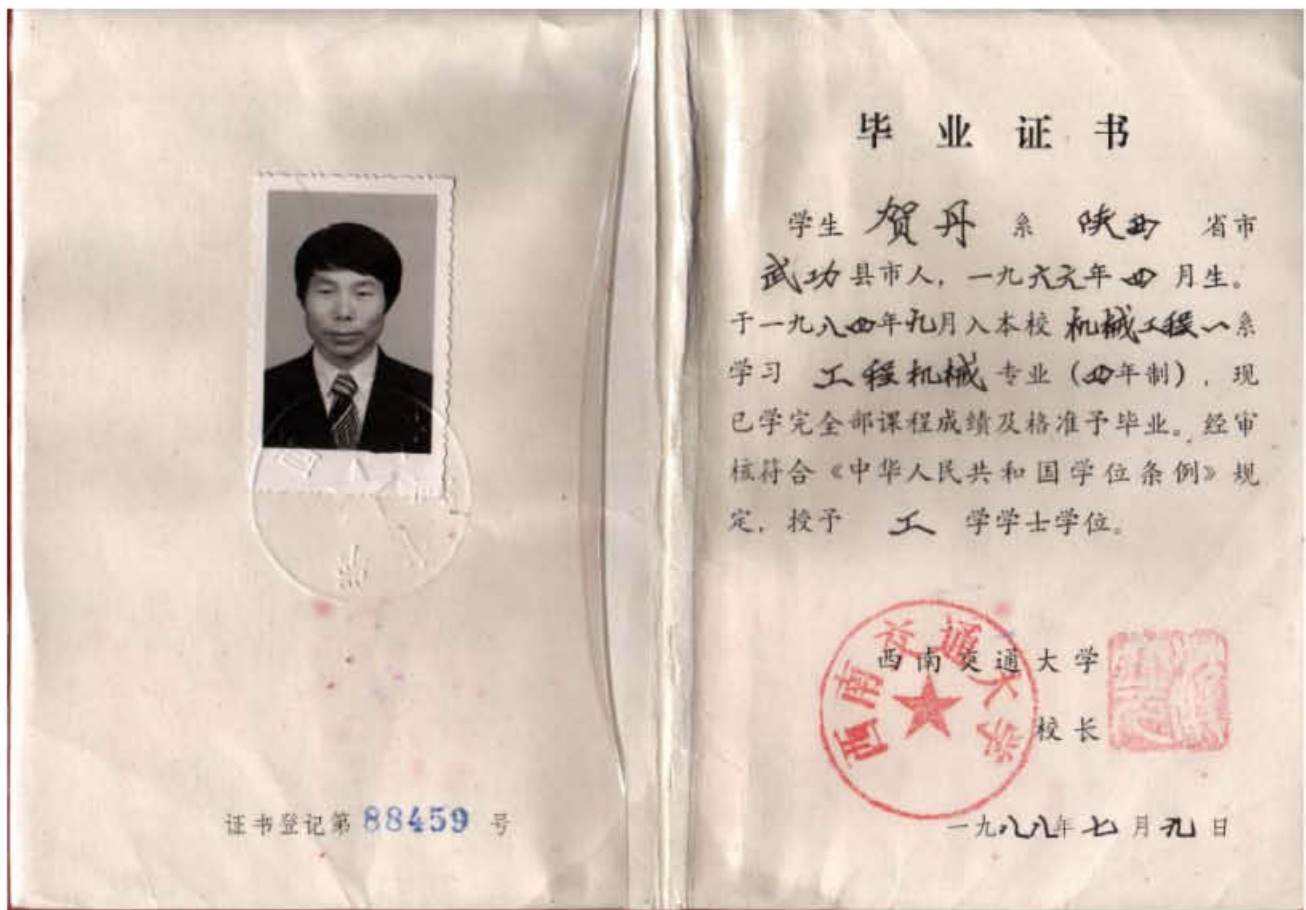 证书登记第 88459 号
毕业证书
学生 贺丹 系 陕西 省市
武功县市人，一九六六年四月生。
于一九八四年九月入本校机械工程一系
学习 工程机械 专业（四年制），现
已学完全部课程成绩及格准予毕业。经审
核符合《中华人民共和国学位条例》规
定，授予 工 学学士学位。
西南交通大学
西南交通大学
校长
一九八八年七月九日